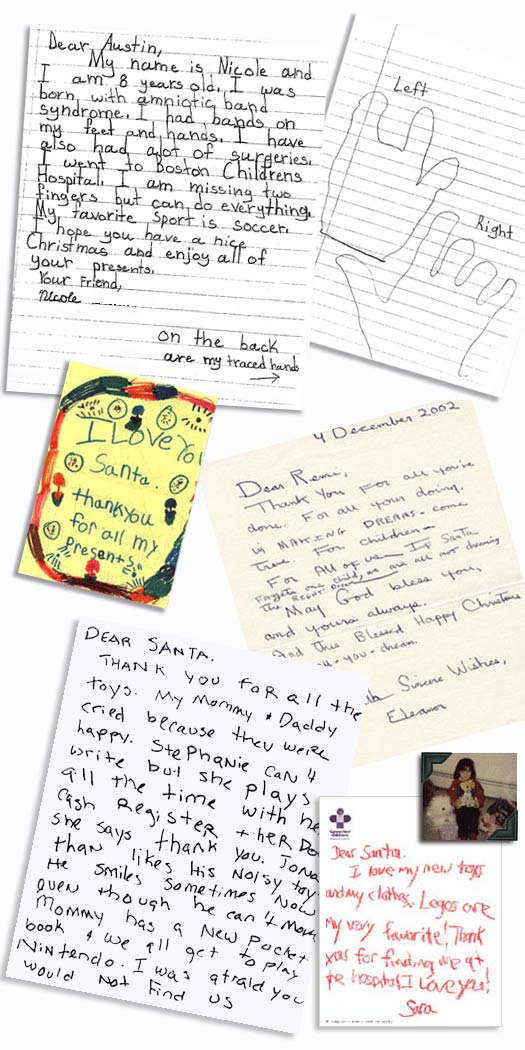 Dear Austin,
My name is Nicole and
I am 8 years old. I was
born with amniotic band
syndrome. I had bands on
my feet and hands. I have
also had alot of surgeries.
I went to Boston Childrens
Hospital. I am missing two
fingers but can do everything.
My favorite sport is soccer.
I hope you have a nice
Christmas and enjoy all of
your presents.
Your Friend,
Nicole
on the back
are my traced hands
Left
Right
I Love You
Santa.
thankyou
for all my
presents.
4 December 2002
Dear Remi,
Thank You For all you've
done. For all your doing.
in MAKING DREAMS - come
True. For Children -
For All of us - IF Santa
Forgets one child, we are all not dreaming
The RIGHT Dream
May God bless you,
and yours always.
And This Blessed Happy Christmas
you - dream.
Sincere Wishes,
Eleanor
DEAR SANTA.
THANK YOU FOR all the
toys. My Mommy & Daddy
cried because they were
happy. Stephanie CAN 4
write but she plays
all the time with her
Cash Register & her
she says thank you.
than likes His Noisy toy
He smiles sometimes Now
even though he can 4 move
Mommy has a New Pocket
book & we all get to play
Nintendo. I was afraid you
would Not find us
Dear Santa.
I love my new toys
and my clothes. Legos are
my very favorite! Thank
you for finding me at
the hospital I Love you!
Sara